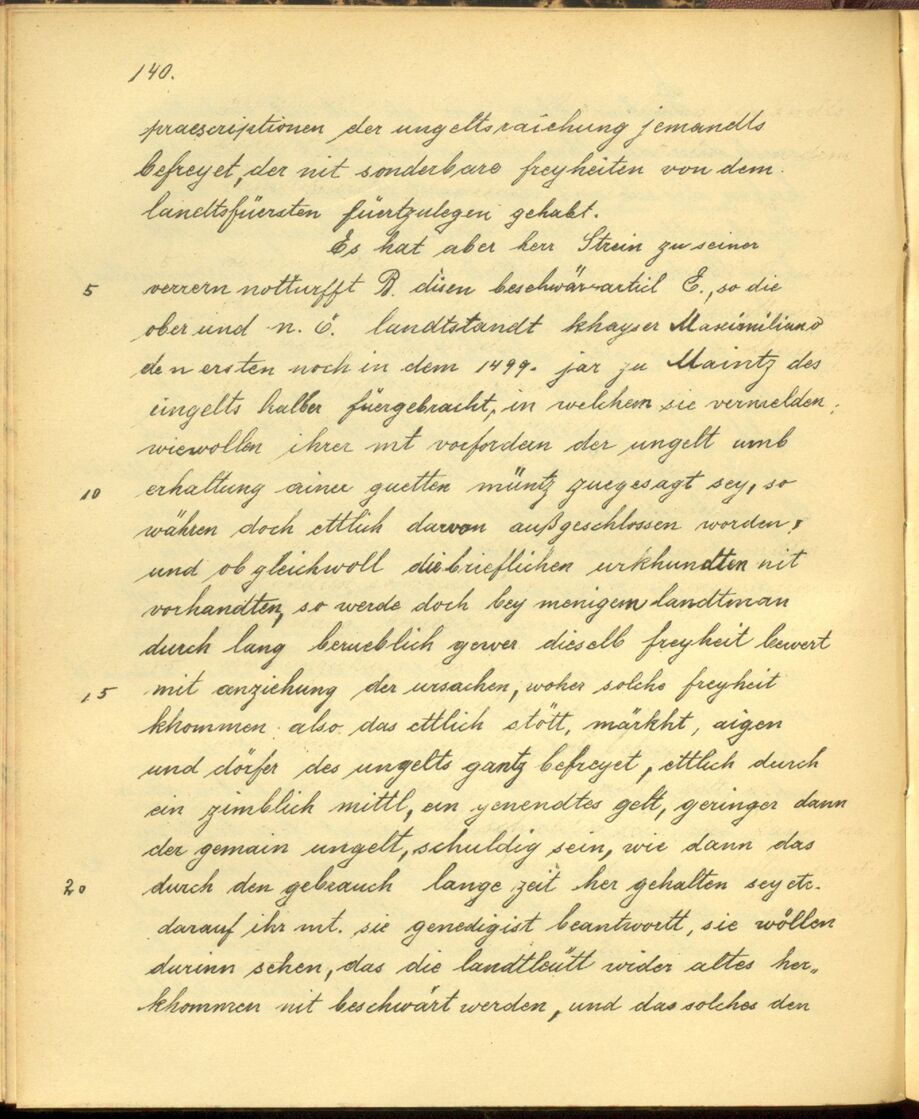 140.
praescriptionen der ungeltsraichung jemandts
befreyet, der nit sonderbare freyheiten von dem
landtsfüersten füertzulegen gehabt.
Es hat aber herr Strein zu seiner
5 verrern notturfft B. disen beschwärarticl E., so die
ober und n. ö. landtstandt khayser Maximiliano
den ersten noch in dem 1499. jar zu Maintz des
ungelts halber füergebracht, in welchem sie vermelden,
wiewollen ihrer mt vorfordern der ungelt umb
10 erhaltung ainer guetten müntz zuegesagt sey, so
währen doch ettlich darvon außgeschlossen worden,
und ob gleichwoll die brieflichen urkhundten nit
vorhandten, so werde doch bey menigem landtman
durch lang berueblich gewer dieselb freyheit bewert
15 mit anziehung der ursachen, woher solche freyheit
khommen also das ettlich stött, märkht, aigen
und dörfer des ungelts gantz befreyet, ettlich durch
ein zimblich mittl, ein genendtes gelt, geringer dann
der gemain ungelt, schuldig sein, wie dann das
20 durch den gebrauch lange zeit her gehalten sey etc.
darauf ihr mt. sie genedigist beantwortt, sie wöllen
darinn sehen, das die landtleütt wider altes her„
khommen nit beschwärt werden, und das solches den